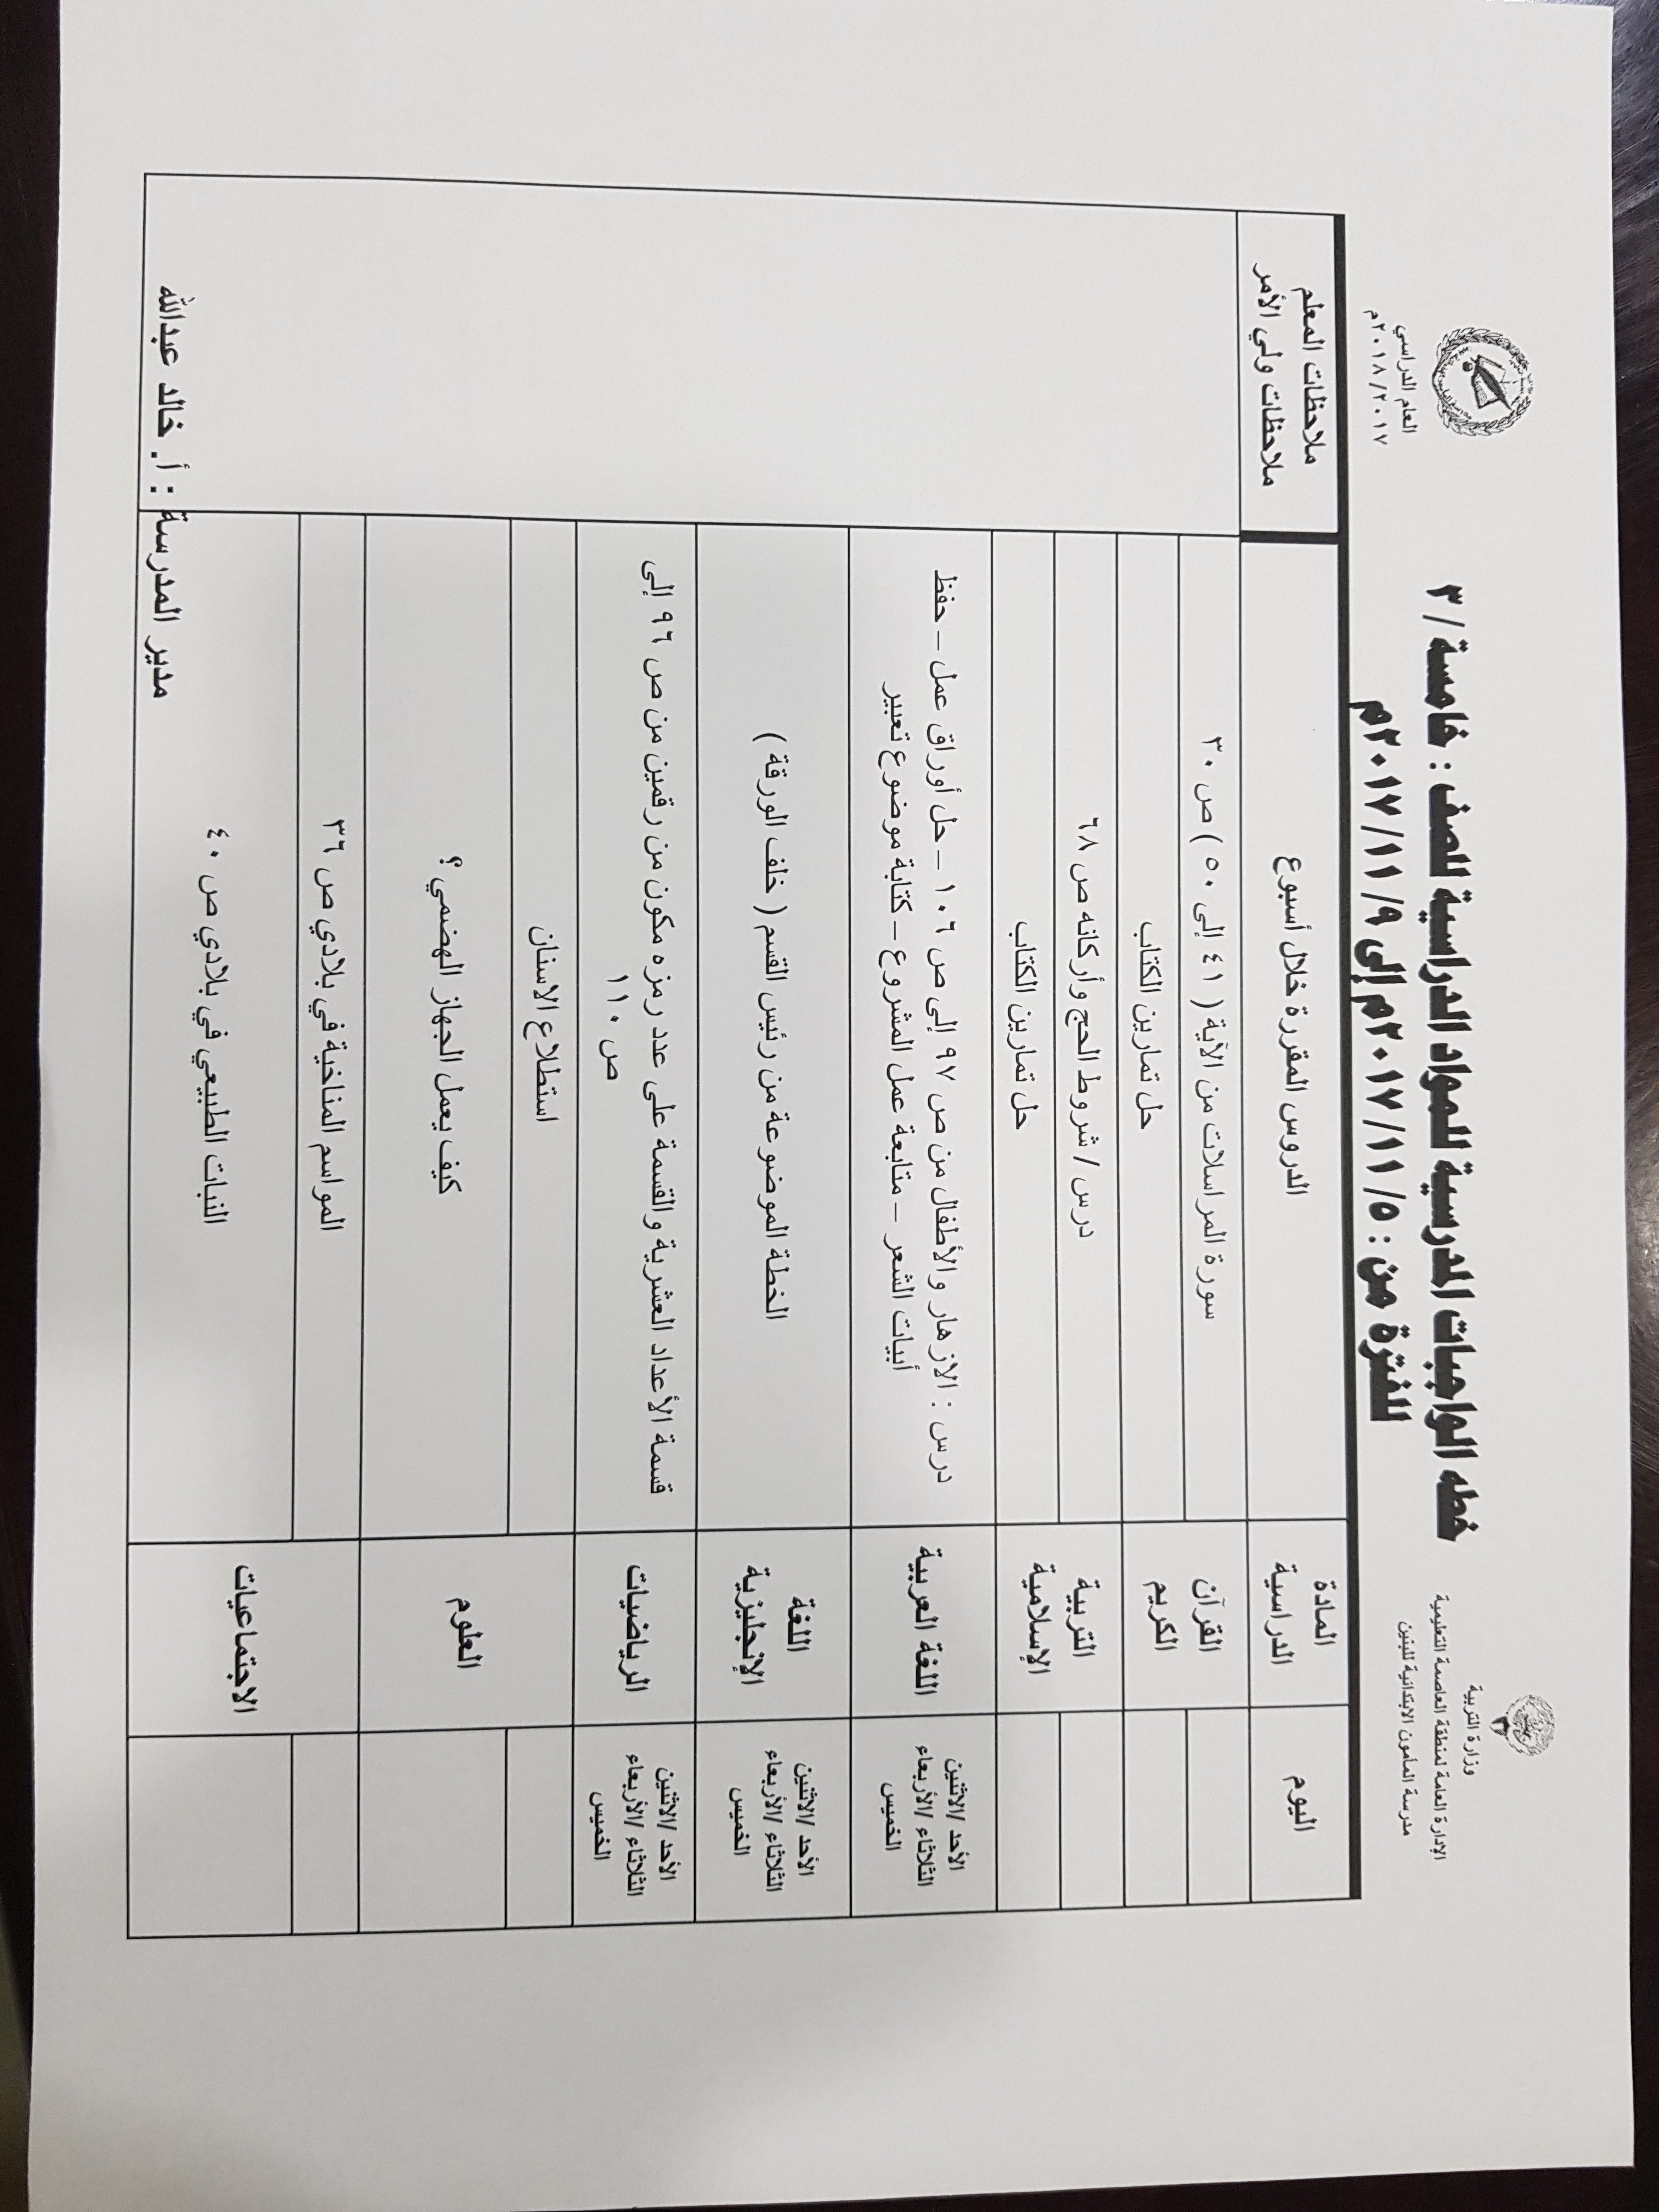 وزارة التربية
الإدارة العامة لمنطقة العاصمة التعليمية
مدرسة المأمون الابتدائية للبنين
خطه الواجبات المدرسية للمواد الدراسية للصف : خامسة / ٣
للفترة من : ٢٠١٧/١١/٥م إلى ٢٠١٧/١١/٩م
العام الدراسي
٢٠١٨/٢٠١٧م
اليوم
المادة
الدراسية
الدروس المقررة خلال أسبوع
ملاحظات المعلم
ملاحظات ولي الأمر
القرآن
الكريم
سورة المراسلات من الآية ( ٤١ إلى ٥٠ ) ص ٣٠
حل تمارين الكتاب
التربية
الإسلامية
درس / شروط الحج وأركانه ص ٦٨
حل تمارين الكتاب
الأحد /الاثنين
الثلاثاء /الأربعاء
الخميس
اللغة العربية
درس : الازهار والأطفال من ص ٩٧ إلى ص ١٠٦ – حل أوراق عمل – حفظ
أبيات الشعر – متابعة عمل المشروع – كتابة موضوع تعبير
الأحد /الاثنين
الثلاثاء /الأربعاء
الخميس
اللغة
الإنجليزية
الخطة الموضوعة من رئيس القسم ( خلف الورقة )
الأحد /الاثنين
الثلاثاء /الأربعاء
الخميس
الرياضيات
قسمة الأعداد العشرية والقسمة على عدد رمزه مكون من رقمين من ص ٩٦ إلى
ص ١١٠
العلوم
استطلاع الاسنان
كيف يعمل الجهاز الهضمي ؟
الاجتماعيات
المواسم المناخية في بلادي ص ٣٦
النبات الطبيعي في بلادي ص ٤٠
مدير المدرسة : أ. خالد عبدالله